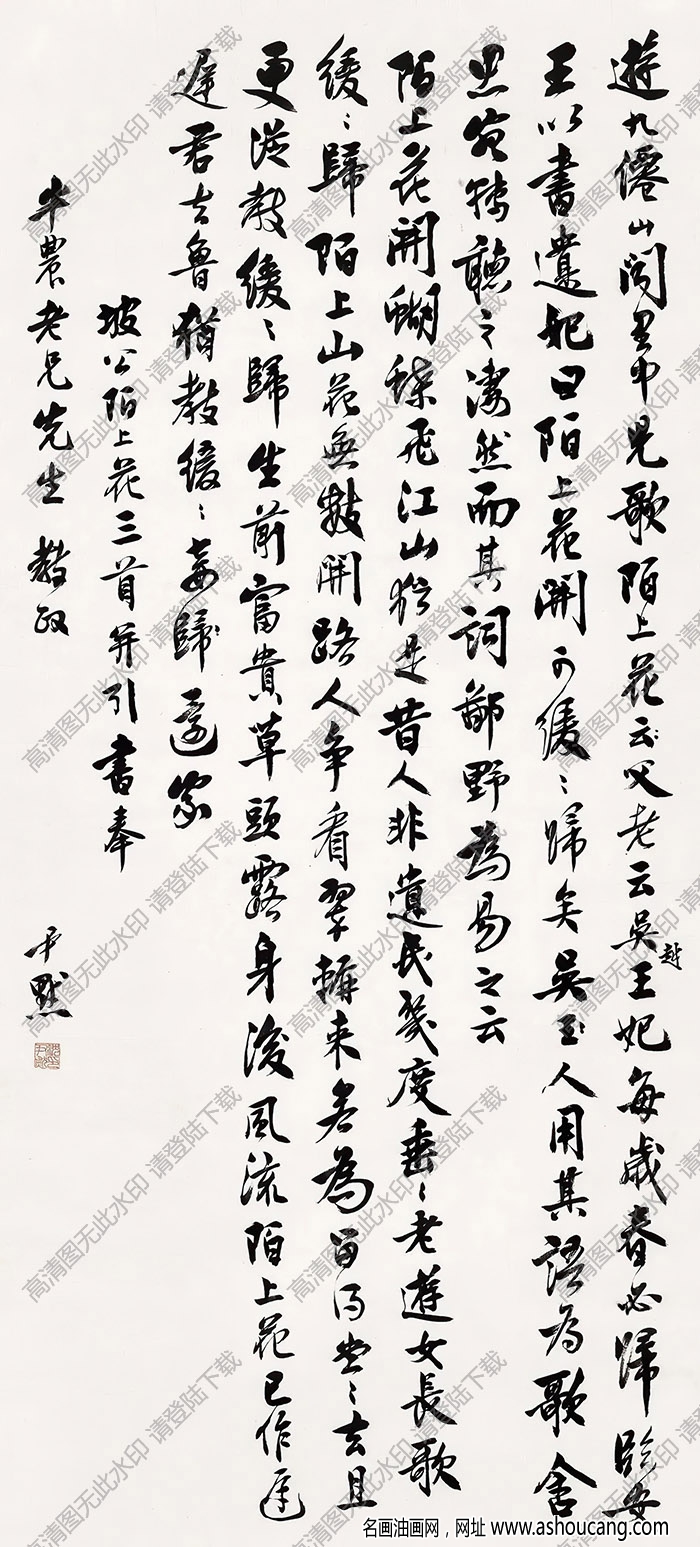 遊九僊山聞里中兒歌陌上花云父老云吳越王妃每歲春必歸臨安
王以書遺妃曰陌上花開可緩〻歸矣吳王人用其語為歌含
思宛轉聽之淒然而其詞鄙野為易之云
陌上花開蝴蝶飛江山猶是昔人非遺民幾度垂〻老遊女長歌
緩〻歸陌上山花無數開路人爭看翠輧來若為留得堂〻去且
更從教緩〻歸生前富貴草頭露身後風流陌上花已作遲
遲君去魯猶教緩〻妾歸還家
坡公陌上花三首并引書奉
半農老兄先生教政
尹默
高清图无此水印 请登陆下载
名画油画网，网址 www.ashoucang.com